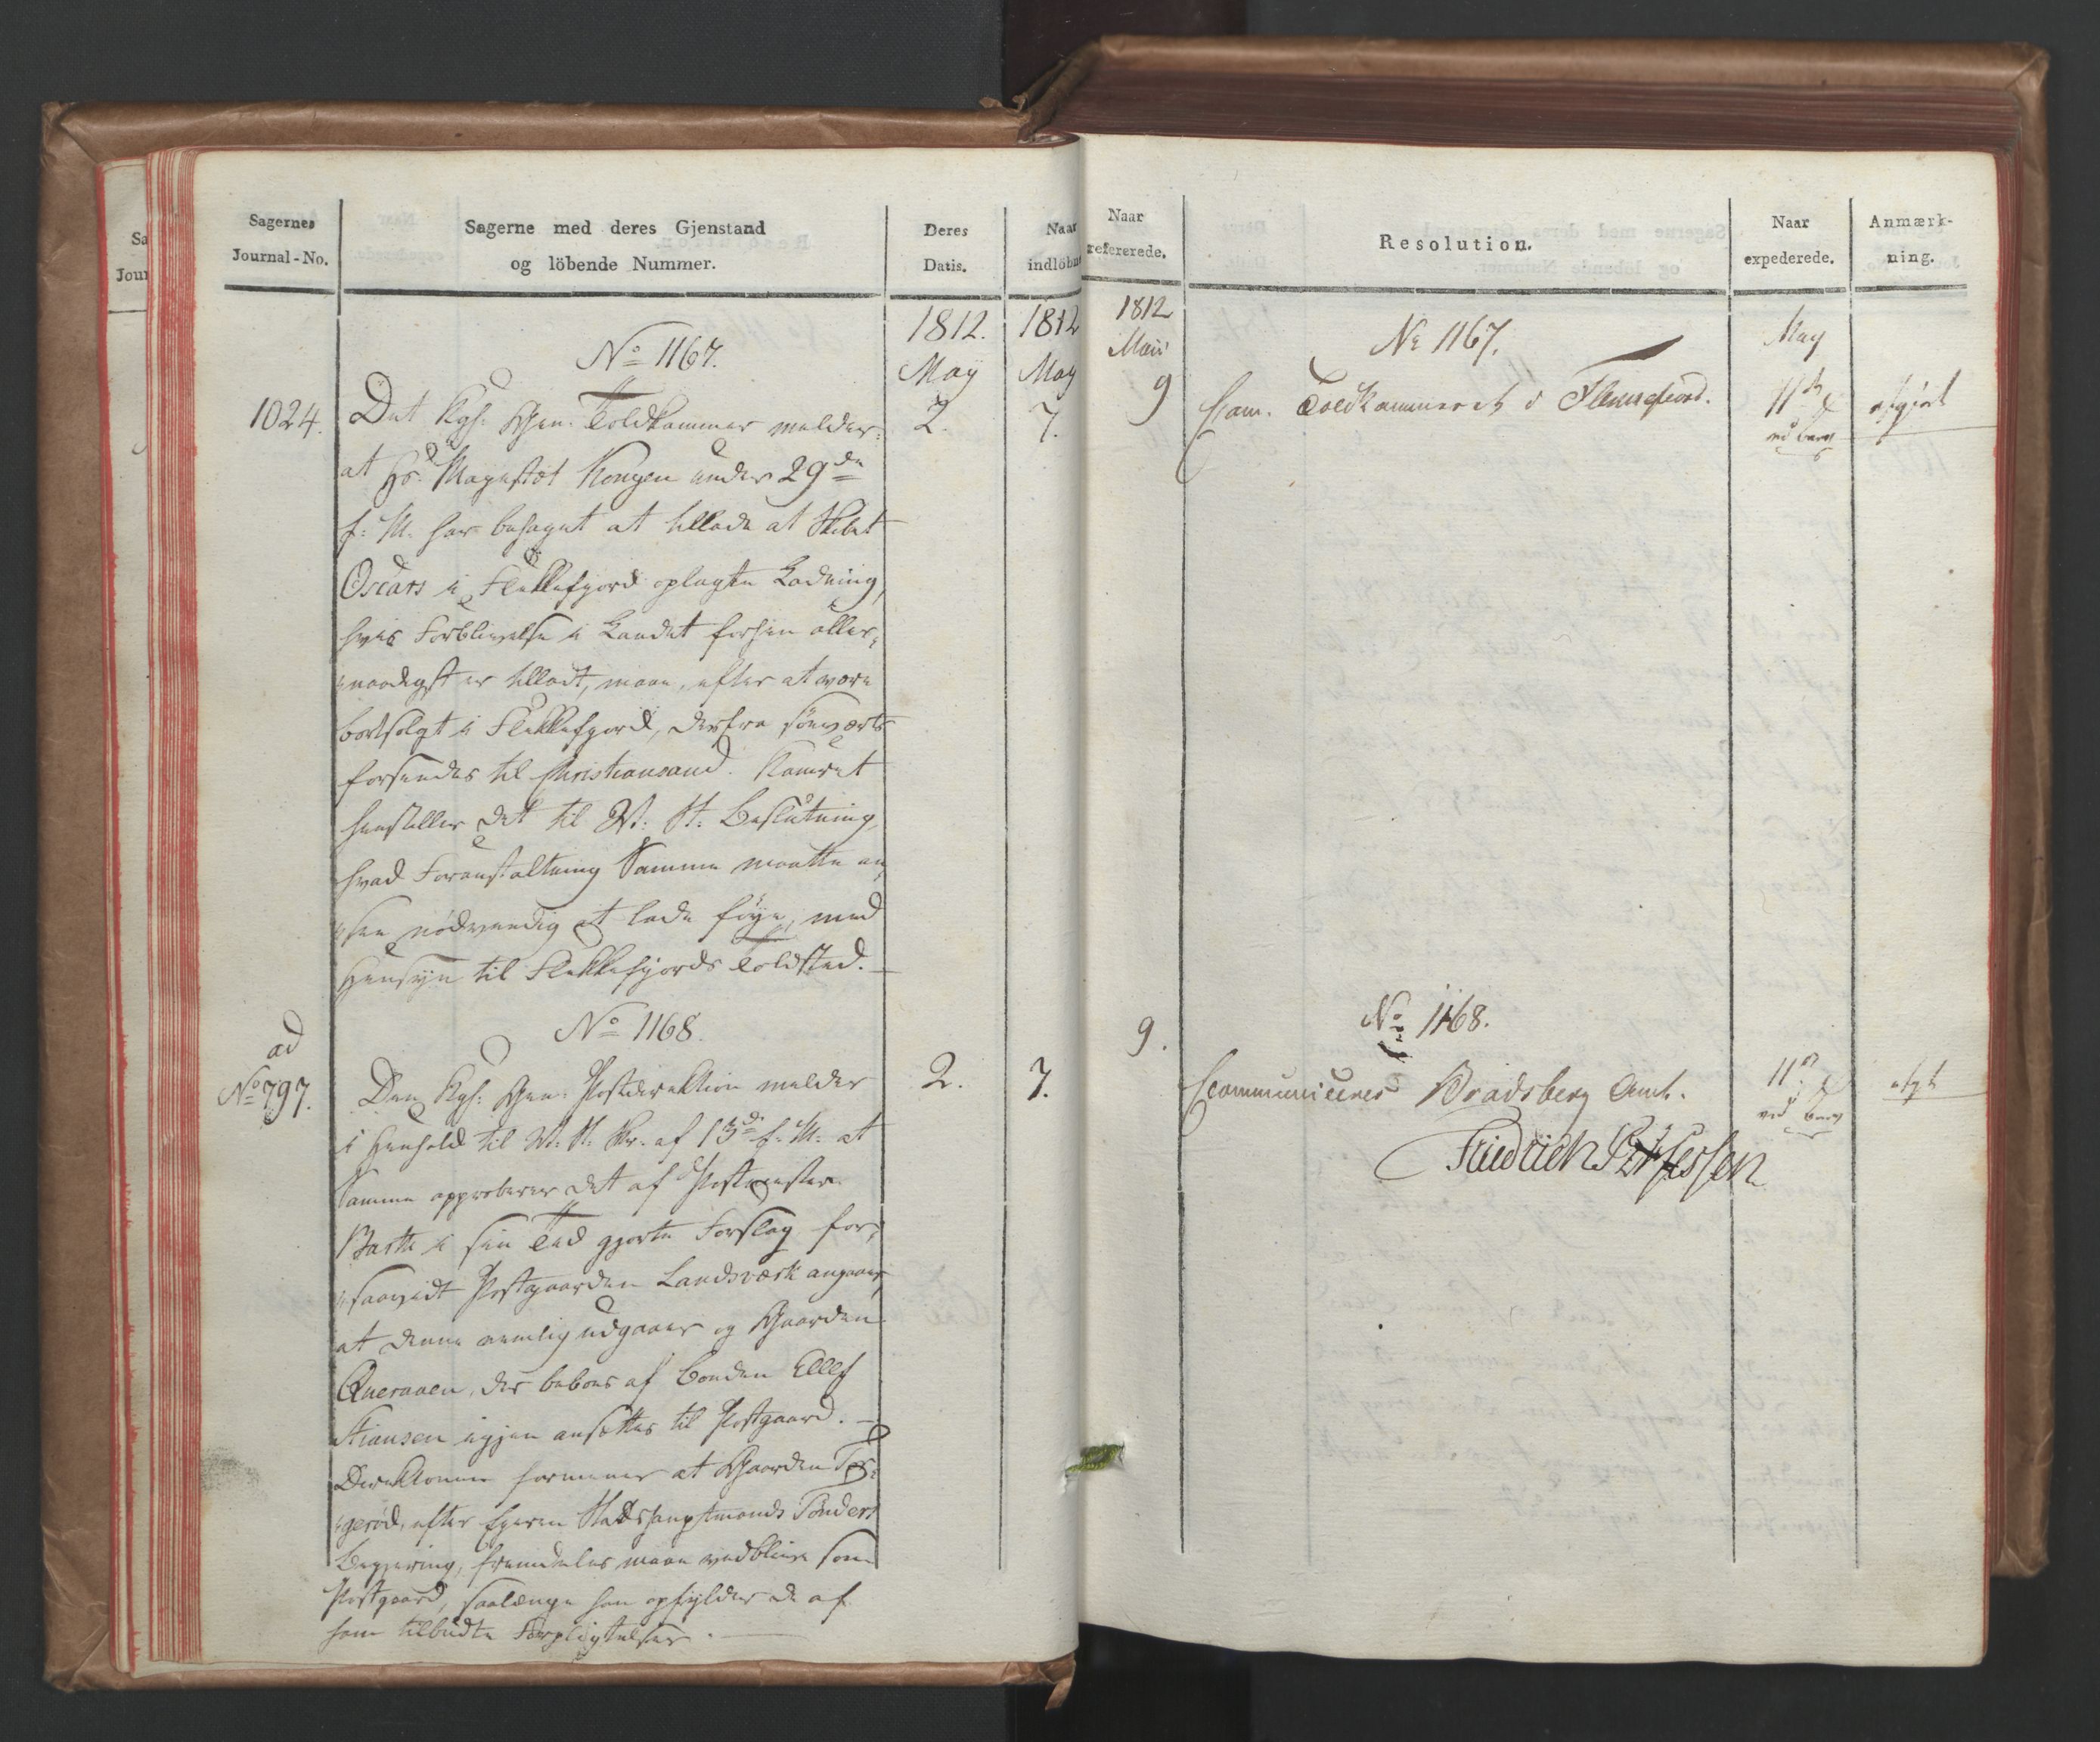 Sagernes
Journal-No.
Sagerne med deres Gjenstand
og löbende Nummer.
Deres
Datis.
Naar
indlöbne
1812.
May
1812
May
No 1167.
1024.
2.
7.
Det Kgl: Gen: Toldkammer melder:
at Hs: Mayestæt Kongen under 29de
f: M. har behaget at tillade at Skibet
Oscars i Flekkefjord oplagte Ladning,
hvis Forblivelse i Landet forhen aller-
naadigst er tilladt, maae, efter at være
bortsolgt i Flekkefjord, derfra söeværts
forsendes til Christiansand. Kamret
henstiller det til R: St: Beslutning,
hvad Foranstaltning Samme maatte an-
see nødvendig at lade föye, med
Hensyn til Flekkefjords Toldsted. —
No 1168.
ad
No 797.
2.
7.
Den Kgl: Gen: Postdirektion melder
i Henhold til R: St: Skr. af 13de f: M: at
Samme approberer det af Postmester
Barth i sin Tid gjorte Forslag for-
saavidt Postgaarden Landsværk angaaer,
at denne nemlig udgaaer og Gaarden
Queraaen, der beboes af Bonden Ellef
Stiansen igjen ansættes til Postgaard. —
Direktionen formener at Gaarden
gerød, efter Eyeren Stadshauptmands Tönders
Begjering, fremdeles maae vedblive som
Postgaard, saalænge han opfylder de af
ham tilbudte Forpligtelser. —
Naar
refererede.
Resolution.
Naar
expederede.
Anmærk-
ning.
1812
Maii
May
No 1167.
9
Com. Toldkammeret i
11te
afgjort
No 1168.
9.
Communiceres Bradsberg Amt.
11te
afgt
Friedrich